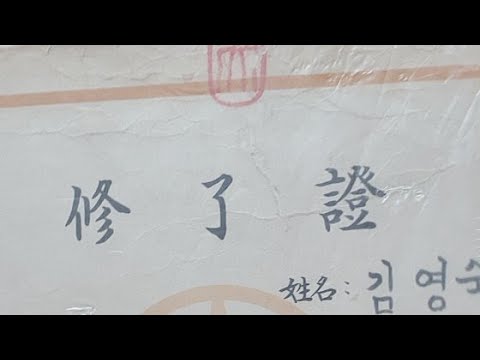 修了證
姓名: 김영순